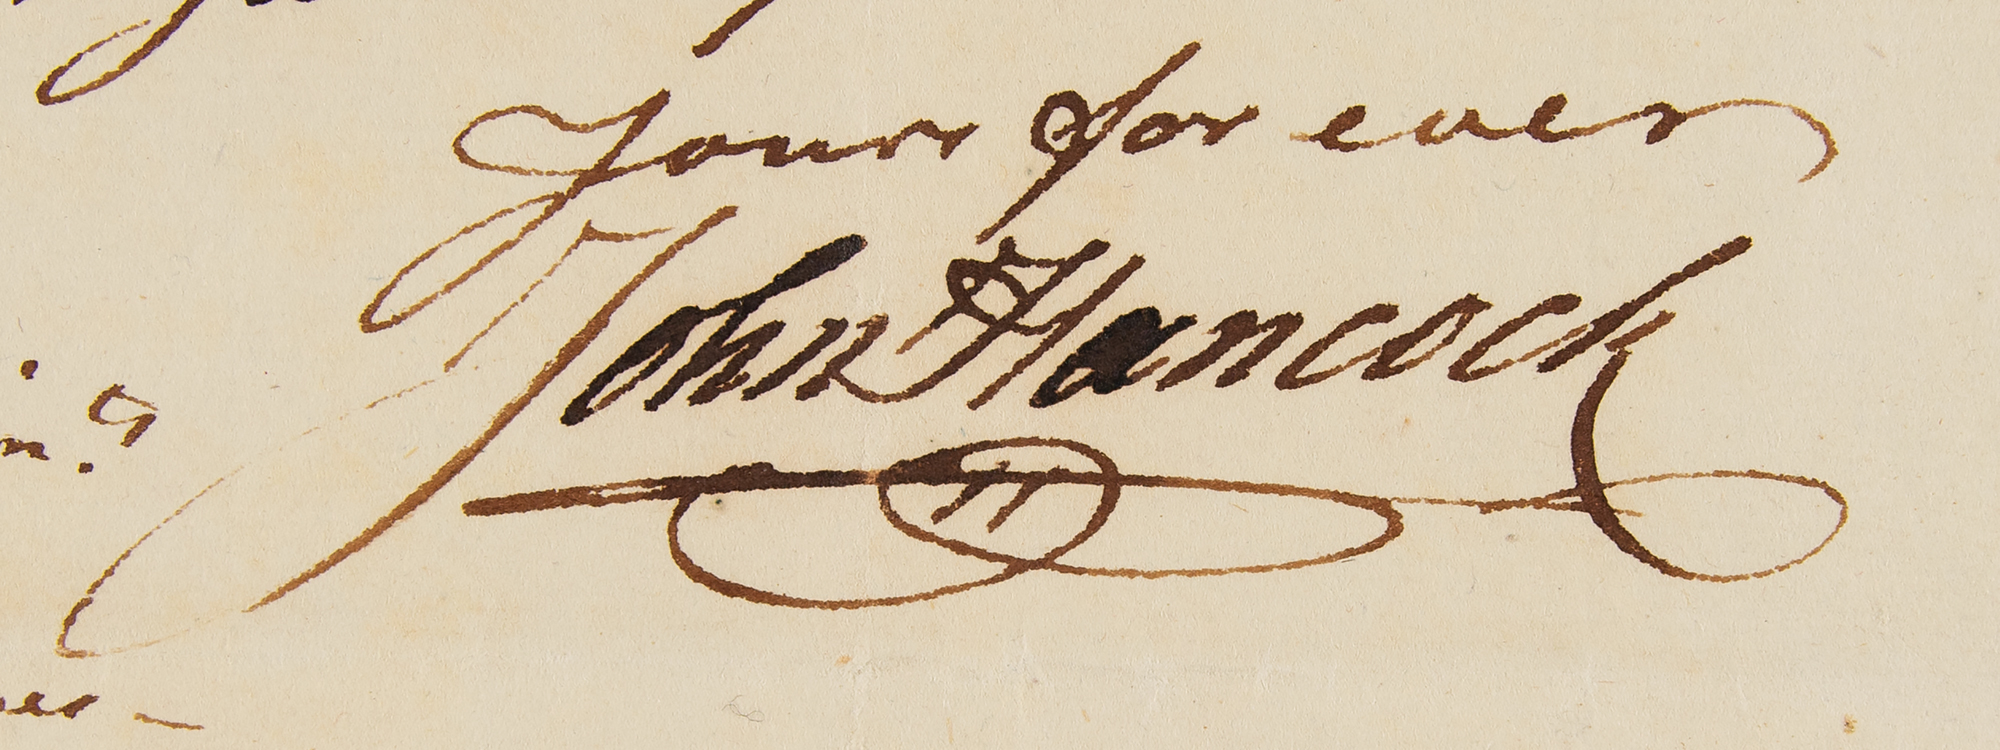 Yours for ever
John Hancock